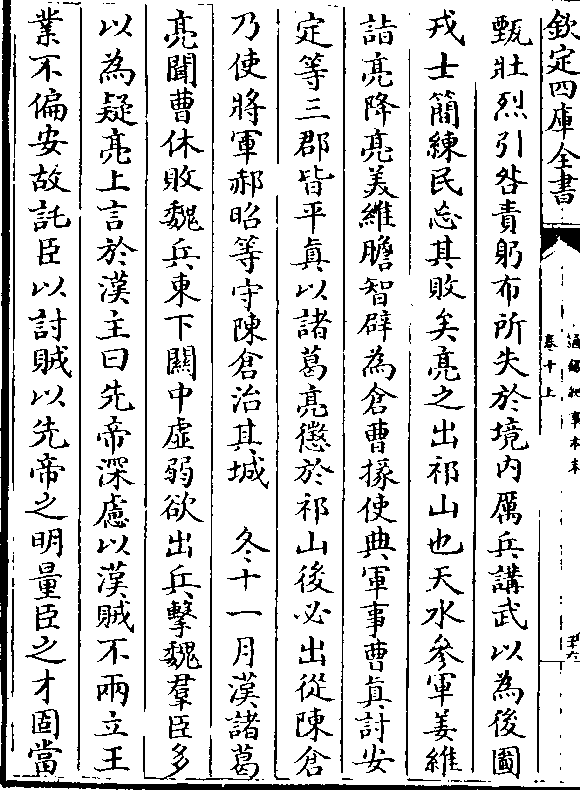 欽定四庫全書
通鑑紀事本末
卷十上
甄壯烈引咎責躬布所失於境内厲兵講武以為後圖
戎士簡練民忘其敗矣亮之出祁山也天水參軍姜維
詣亮降亮美維膽智辟為倉曹掾使典軍事曹真討安
定等三郡皆平真以諸葛亮懲於祁山後必出從陳倉
乃使將軍郝昭等守陳倉治其城　冬十一月漢諸葛
亮聞曹休敗魏兵東下關中虛弱欲出兵擊魏羣臣多
以為疑亮上言於漢主曰先帝深慮以漢賊不兩立王
業不偏安故託臣以討賊以先帝之明量臣之才固當